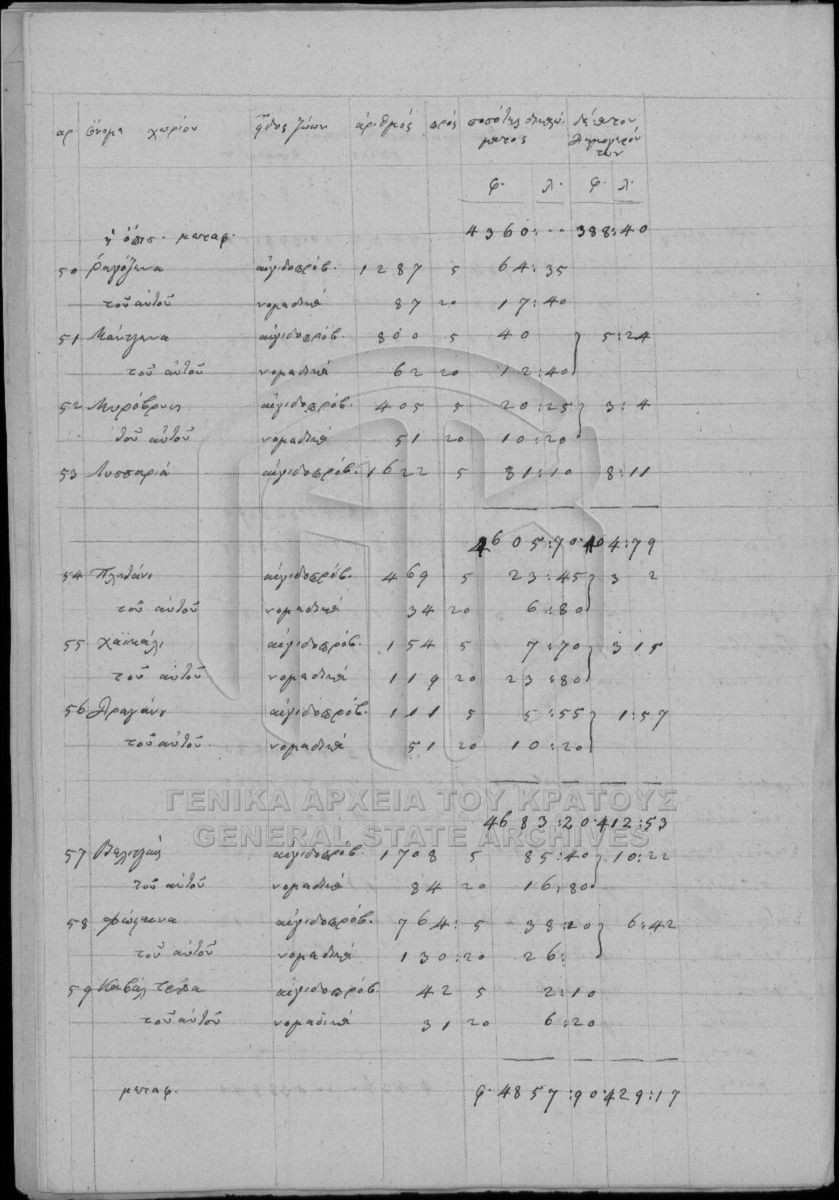 αρ ὄνομα χωρίου εἶδος ζώων ἀριθμός πρὸς ποσότης
φ. λ. φ. λ.
ἡ ὄπισ. μεταφ. 4360:·· 388:40
50 αἰγιδοπρόβ. 1287 5 64:35
τοῦ αὐτοῦ νομαδικά 87 20 17:40
51 αἰγιδοπρόβ. 800 5 40 5:24
τοῦ αὐτοῦ νομαδικά 62 20 12:40
52 Μυρόβρυσι αἰγιδοπρόβ. 405 5 20:25 3:4
τοῦ αὐτοῦ νομαδικά 51 20 10:20
53 αἰγιδοπρόβ. 1622 5 81:10 8:11
4605:70 404:79
54 Πλατάνι αἰγιδοπρόβ. 469 5 23:45 3 2
τοῦ αὐτοῦ νομαδικά 34 20 6:80
55 Χαϊκάλι αἰγιδοπρόβ. 154 5 7:70 315
τοῦ αὐτοῦ νομαδικά 119 20 23:80
56 Δραγάνι αἰγιδοπρόβ. 111 5 5:55 1:57
τοῦ αὐτοῦ. νομαδικά 51 20 10:20
ΓΕΝΙΚΑ ΑΡΧΕΙΑ ΤΟΥ ΚΡΑΤΟΥΣ
4683:20·412:53
GENERAL STATE ARCHIVES
57 αἰγιδοπρόβ. 1708 5 85:40 10:22
τοῦ αὐτοῦ νομαδικά 84 20 16:80
58 αἰγιδοπρόβ. 764: 5 38:20 6:42
τοῦ αὐτοῦ νομαδικά 130:20 26:
59 αἰγιδοπρόβ 42 5 2:10
τοῦ αὐτοῦ νομαδικά 31 20 6:20
μεταφ. φ. 4857:90·429:17